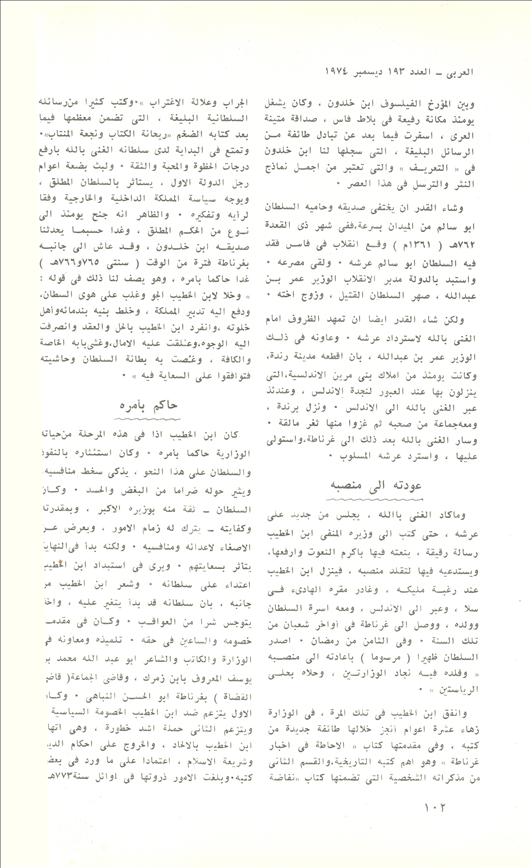 العربى ـ العدد ١٩٣ ديسمبر ١٩٧٤
وبين المؤرخ الفيلسوف ابن خلدون ، وكان يشغل
يومئذ مكانة رفيعة فى بلاط فاس ، صداقة متينة
العرى ، اسفرت فيما بعد عن تبادل طائفة من
الرسائل البليغة ، التى سجلها لنا ابن خلدون
فى « التعريف » والتى تعتبر من اجمل نماذج
النثر والترسل فى هذا العصر .
وشاء القدر ان يختفى صديقه وحاميه السلطان
ابو سالم من الميدان بسرعة،ففى شهر ذى القعدة
٧٦٢هـ ( ١٣٦١م ) وقع انقلاب فى فاس فقد
فيه السلطان ابو سالم عرشه . ولقى مصرعه .
واستبد بالدولة مدبر الانقلاب الوزير عمر بن
عبدالله ، صهر السلطان القتيل ، وزوج اخته .
ولكن شاء القدر ايضا ان تمهد الظروف امام
الغنى بالله لاسترداد عرشه . وعاونه فى ذلك
الوزير عمر بن عبدالله ، بان اقطعه مدينة رندة،
وكانت يومئذ من املاك بنى مرين الاندلسية،التى
ينزلون بها عند العبور لنجدة الاندلس ، وعندئذ
عبر الغنى بالله الى الاندلس . ونزل برندة ،
ومعه جماعة من صحبه ثم غزوا منها ثغر مالقة .
وسار الغنى بالله بعد ذلك الى غرناطة،واستولى
عليها ، واسترد عرشه المسلوب .
عودته الى منصبه
وماكاد الغنى باالله ، يجلس من جديد على
عرشه ، حتى كتب الى وزيره المنفى ابن الخطيب
رسالة رقيقة ، ينعته فيها باكرم النعوت وارفعها،
ويستدعيه فيها لتقلد منصبه ، فنزل ابن الخطيب
عند رغبة مليكه ، وغادر مقره الهادىء فى
سلا ، وعبر الى الاندلس ، ومعه اسرة السلطان
وولده ، ووصل الى غرناطة فى اواخر شعبان من
تلك السنة . وفى الثامن من رمضان . اصدر
السلطان ظهيرا ( مرسوما ) باعادته الى منصبه
« وقلده فيه نجاد الوزارتين ، وحلاه بعلى
الرياستين » .
وانفق ابن الخطيب فى تلك المرة ، فى الوزارة
زهاء عشرة اعوام انجز خلالها طائفة جديدة من
كتبه ، وفى مقدمتها كتاب « الاحاطة فى اخبار
غرناطة » وهو اهم كتبه التاريخية،والقسم الثانى
من مذكراته الشخصية التى تضمنها كتاب «نفاضة
الجراب وعلالة الاغتراب ».وكتب كثيرا من رسائله
السلطانية البليغة ، التى تضمن معظمها فيما
بعد كتابه الضخم «ريحانة الكتاب ونجعة المنتاب».
وتمتع فى البداية لدى سلطانه الغنى بالله بارفع
درجات الحظوة والمحبة والثقة . ولبث بضعة اعوام
رجل الدولة الاول ، يستأثر بالسلطان المطلق ،
ويوجه سياسة المملكة الداخلية والخارجية وفقا
لرايه وتفكيره . والظاهر انه جنح يومئذ الى
نوع من الحكم المطلق ، وغدا حسبما يحدثنا
صديقه ابن خلدون ، وقد عاش الى جانبه
بغرناطة فترة من الوقت ( سنتى ٧٦٥و٧٦٦هـ )
غدا حاكما بامره ، وهو يصف لنا ذلك فى قوله :
« وخلا لابن الخطيب الجو وغلب على هوى السطان،
ودفع اليه تدبير المملكة ، وخلط بنيه بندمائه وأهل
خلوته ،وانفرد ابن الخطيب بالحل والعقد وانصرفت
اليه الوجوه،وعلقت عليه الامال،وغشى بابه الخاصة
والكافة ، وغصت به بطانة السلطان وحاشيته
فتوافقوا على السعاية فيه » .
حاكم بامره
كان ابن الخطيب اذا فى هذه المرحلة من حياته
الوزارية حاكما بامره . وكان استئثاره بالنفوذ
والسلطان على هذا النحو ، يذكى سخط منافسيه
ويثير حوله ضراما من البغض والحسد . وكان
السلطان ـ ثقة منه بوزيره الاكبر ، وبمقدرته
وكفايته ـ يترك له زمام الامور ، ويعرض عن
الاصغاء لاعدائه ومنافسيه . ولكنه بدأ فى النهاية
يتاثر بسعايتهم . ويرى فى استبداد ابن الخطيب
اعتداء على سلطانه . وشعر ابن الخطيب من
جانبه ، بان سلطانه قد بدأ يتغير عليه ، واخذ
يتوجس شرا من العواقب . وكان فى مقدمة
خصومه والساعين فى حقه . تلميذه ومعاونه فى
الوزارة والكاتب والشاعر ابو عبد الله محمد بن
يوسف المعروف بابن زمرك ، وقاضى الجماعة( قاضى
القضاة ) بغرناطة ابو الحسن النباهى . وكان
الاول يتزعم ضد ابن الخطيب الخصومة السياسية
ويتزعم الثانى حملة اشد خطورة ، وهى اتهام
ابن الخطيب بالالحاد ، والخروج على احكام الدين
وشريعة الاسلام ، اعتمادا على ما ورد فى بعض
كتبه.وبلغت الامور ذروتها فى اوائل سنة ٧٧٣هـ
١٠٢